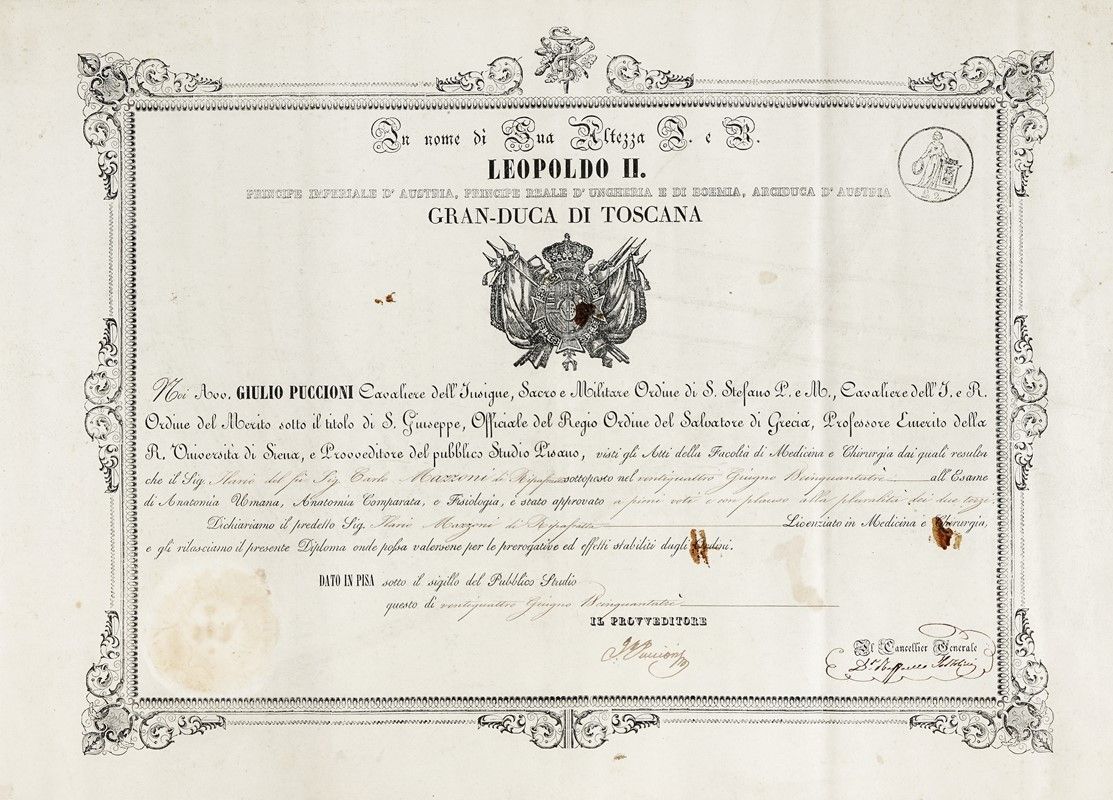 In nome di Sua Altezza I. e R.
LEOPOLDO II.
PRINCIPE IMPERIALE D' AUSTRIA, PRINCIPE REALE D' UNGHERIA E DI BOEMIA, ARCIDUCA D' AUSTRIA
GRAN-DUCA DI TOSCANA
Noi Avv. GIULIO PUCCIONI Cavaliere dell' Insigne, Sacro e Militare Ordine di S. Stefano P. e M., Cavaliere dell' I. e R.
Ordine del Merito sotto il titolo di S. Giuseppe, Officiale del Regio Ordine del Salvatore di Grecia, Professore Emerito della
R. Università di Siena, e Provveditore del pubblico Studio Pisano, visti gli Atti della Facoltà di Medicina e Chirurgia dai quali resulta
che il Sig. Ilario del fù Sig. Carlo Mazzoni di sottoposto nel ventiquattro Giugno all' Esame
di Anatomia Umana, Anatomia Comparata, e Fisiologia, è stato approvato a pieni voti e con plauso alla pluralità dei due terzi
Dichiariamo il predetto Sig. Ilario Mazzoni di Licenziato in Medicina e Chirurgia,
e gli rilasciamo il presente Diploma onde possa valersene per le prerogative ed effetti stabiliti dagli Ordini.
DATO IN PISA sotto il sigillo del Pubblico Studio
questo dì ventiquattro Giugno
IL PROVVEDITORE
Puccioni
Il Cancellier Generale
Dr. Raffaello